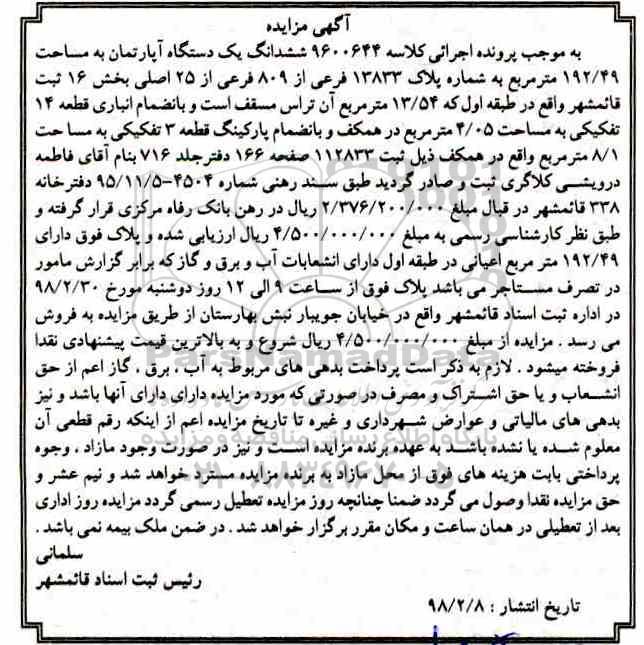 آگهی مزایده
به موجب پرونده اجرائی کلاسه ۹۶۰۰۶۴۴ ششدانگ یک دستگاه آپارتمان به مساحت
۱۹۲/۴۹ مترمربع به شماره پلاک ۱۳۸۳۳ فرعی از ۸۰۹ فرعی از ۲۵ اصلی بخش ۱۶ ثبت
قائمشهر واقع در طبقه اول که ۱۳/۵۴ مترمربع آن تراس مسقف است و بانضمام انباری قطعه ۱۴
تفکیکی به مساحت ۴/۰۵ مترمربع در همکف و بانضمام پارکینگ قطعه ۳ تفکیکی به مساحت
۸/۱ مترمربع واقع در همکف ذیل ثبت ۱۱۲۸۳۳ صفحه ۱۶۶ دفترجلد ۷۱۶ بنام آقای فاطمه
درویشی کلاگری ثبت و صادر گردید طبق سند رهنی شماره ۴۵۰۴-۹۵/۱۱/۵ دفترخانه
۳۳۸ قائمشهر در قبال مبلغ ۲/۳۷۶/۲۰۰/۰۰۰ ریال در رهن بانک رفاه مرکزی قرار گرفته و
طبق نظر کارشناسی رسمی به مبلغ ۴/۵۰۰/۰۰۰/۰۰۰ ریال ارزیابی شده و پلاک فوق دارای
۱۹۲/۴۹ متر مربع اعیانی در طبقه اول دارای انشعابات آب و برق و گاز که برابر گزارش مامور
در تصرف مستاجر می باشد پلاک فوق از ساعت ۹ الی ۱۲ روز دوشنبه مورخ ۹۸/۲/۳۰
در اداره ثبت اسناد قائمشهر واقع در خیابان جویبار نبش بهارستان از طریق مزایده به فروش
می رسد . مزایده از مبلغ ۴/۵۰۰/۰۰۰/۰۰۰ ریال شروع و به بالاترین قیمت پیشنهادی نقدا
فروخته میشود . لازم به ذکر است پرداخت بدهی های مربوط به آب ، برق ، گاز اعم از حق
انشعاب و یا حق اشتراک و مصرف در صورتی که مورد مزایده دارای دارای آنها باشد و نیز
بدهی های مالیاتی و عوارض شهرداری و غیره تا تاریخ مزایده اعم از اینکه رقم قطعی آن
معلوم شده یا نشده باشد به عهده برنده مزایده است و نیز در صورت وجود مازاد ، وجوه
پرداختی بابت هزینه های فوق از محل مازاد به برنده مزایده مسترد خواهد شد و نیم عشر و
حق مزایده نقدا وصول می گردد ضمنا چنانچه روز مزایده تعطیل رسمی گردد مزایده روز اداری
بعد از تعطیلی در همان ساعت و مکان مقرر برگزار خواهد شد . در ضمن ملک بیمه نمی باشد .
سلمانی
رئیس ثبت اسناد قائمشهر
تاریخ انتشار : ۹۸/۲/۸
ParsNamadData
پایگاه اطلاع رسانی مناقصه و مزایده